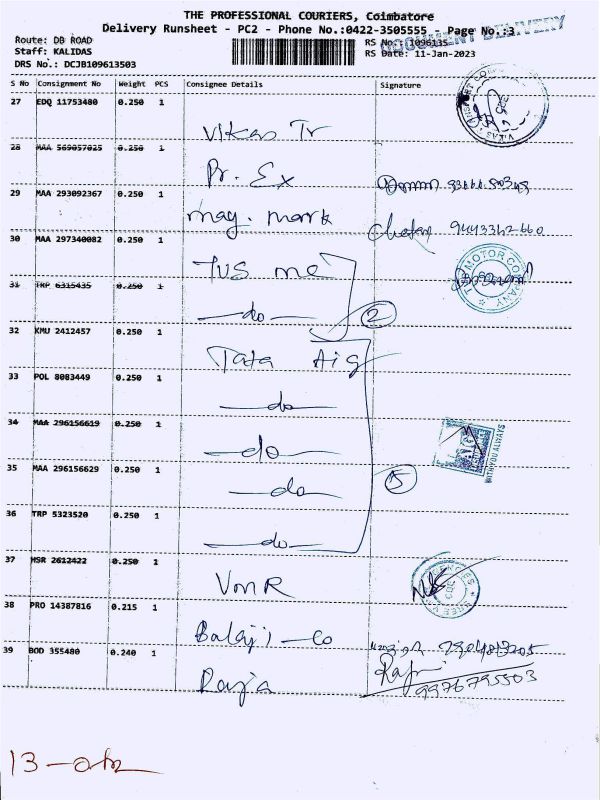 THE PROFESSIONAL COURIERS, Coimbatore
Delivery Runsheet - PC2 - Phone No.:0422-3505555 - Page No.:3
DOCUMENT DELIVERY
Route: DB ROAD
Staff: KALIDAS
DRS No.: DCJB109613503
RS No.: 1096135
RS Date: 11-Jan-2023
S No Consignment No Weight PCS Consignee Details Signature
27 EDQ 11753480 0.250 1 Vikas Tr
28 MAA 569057025 0.250 1 Pr. Ex
29 MAA 293092367 0.250 1 may. mark Chetan 9443342660
30 MAA 297340082 0.250 1 TVS mo
MOTOR COMPANY
31 TRP 6315435 0.250 1 —do—
2
32 KMU 2412457 0.250 1 Tata Aig
33 POL 8083449 0.250 1 —do—
34 MAA 296156619 0.250 1 —do—
WITH YOU ALWAYS
35 MAA 296156629 0.250 1 —do—
5
36 TRP 5323520 0.250 1 —do—
37 MSR 2612422 0.250 1 VMR
38 PRO 14387816 0.215 1 Balaji - Co
39 BOD 355480 0.240 1 Raja Raja
9976795503